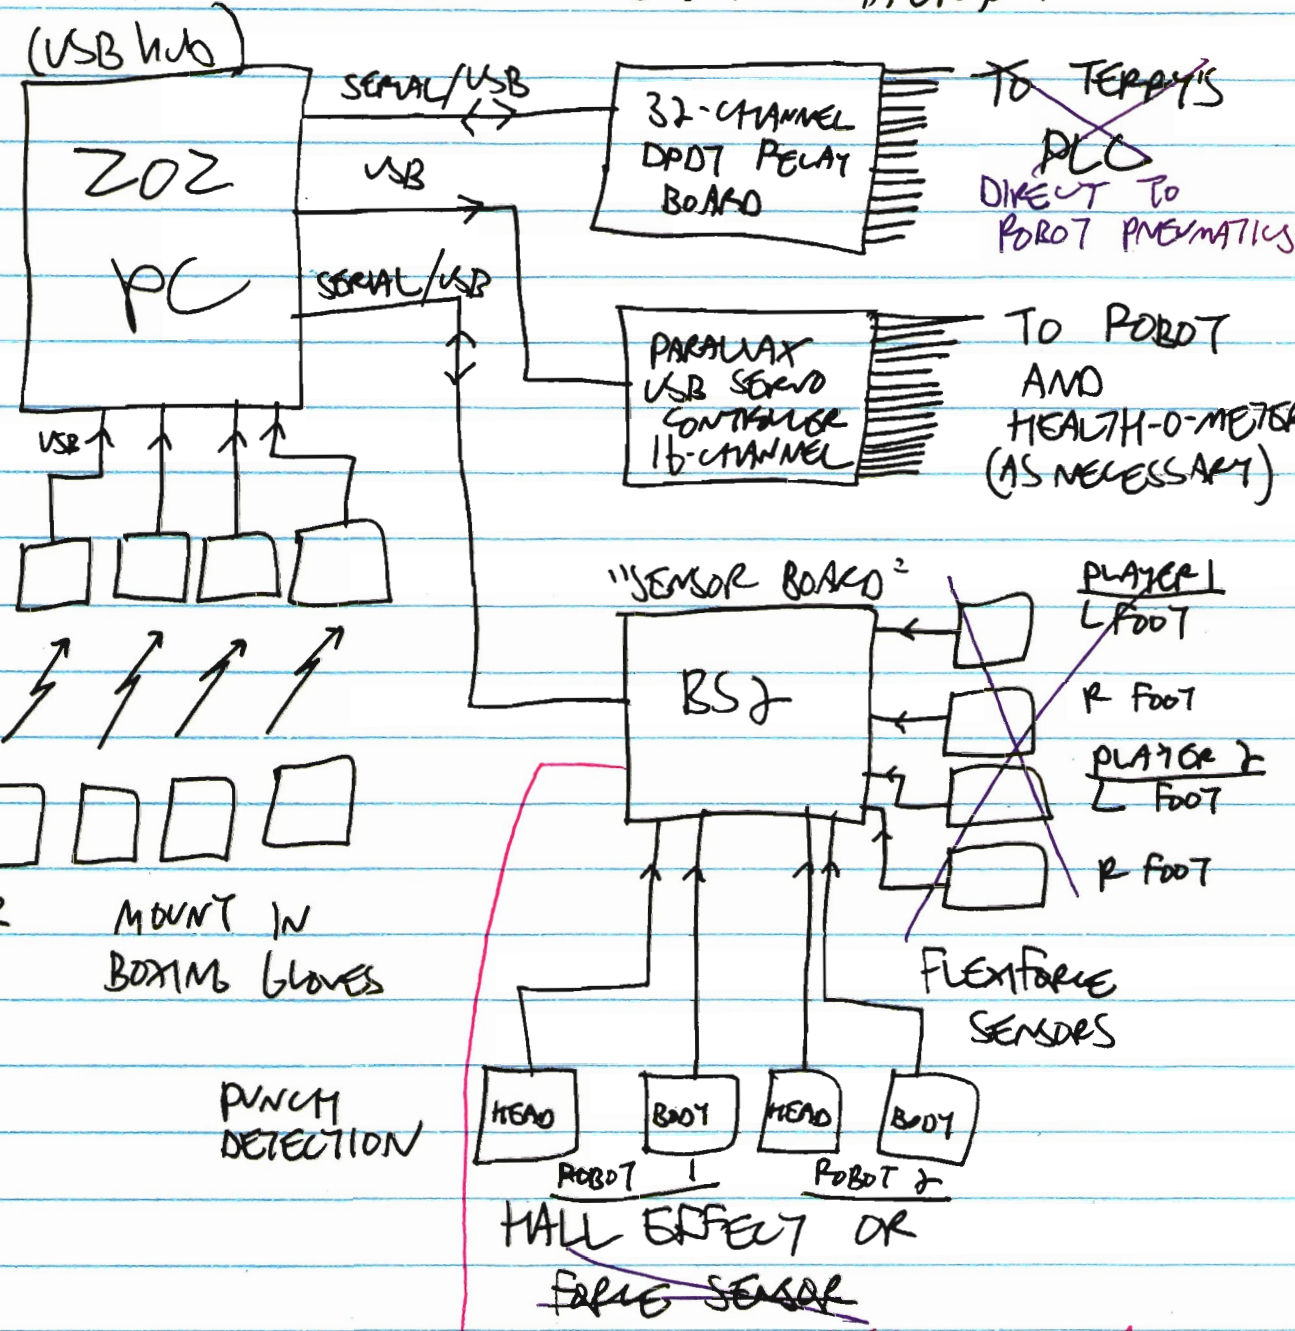 (USB hub)
ZOZ
PC
SERIAL/USB
USB
SERIAL/USB
32-CHANNEL
DPDT RELAY
BOARD
TO TERRY'S
PLC
DIRECT TO
ROBOT PNEUMATICS
PARALLAX
USB SERVO
CONTROLLER
16-CHANNEL
TO ROBOT
AND
HEALTH-O-METER
(AS NECESSARY)
USB
"SENSOR BOARD"
BS2
PLAYER 1
L FOOT
R FOOT
PLAYER 2
L FOOT
R FOOT
FLEXIFORCE
SENSORS
MOUNT IN
BOXING GLOVES
PUNCH
DETECTION
HEAD
BODY
HEAD
BODY
ROBOT 1
ROBOT 2
HALL EFFECT OR
FORCE SENSOR